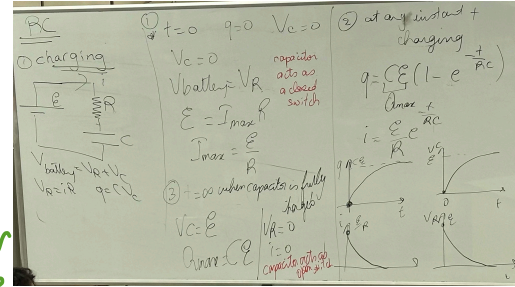 RC
① charging
i
ε
R
C
Vbattery = VR + VC
VR = iR q = CVC
①
t=0 q=0 VC=0
VC = 0
Vbattery = VR
ε = Imax R
Imax = ε/R
capacitor
acts as
a closed
switch
③ t=∞ when capacitor is fully
charged
VC = ε
Qmax = Cε
VR = 0
i = 0
capacitor acts as
open switch
② at any instant t
charging
q = Cε (1 - e^-t/RC)
Qmax
i = ε/R e^-t/RC
q Cε
t
VC
ε
0
t
i ε/R
VR ε